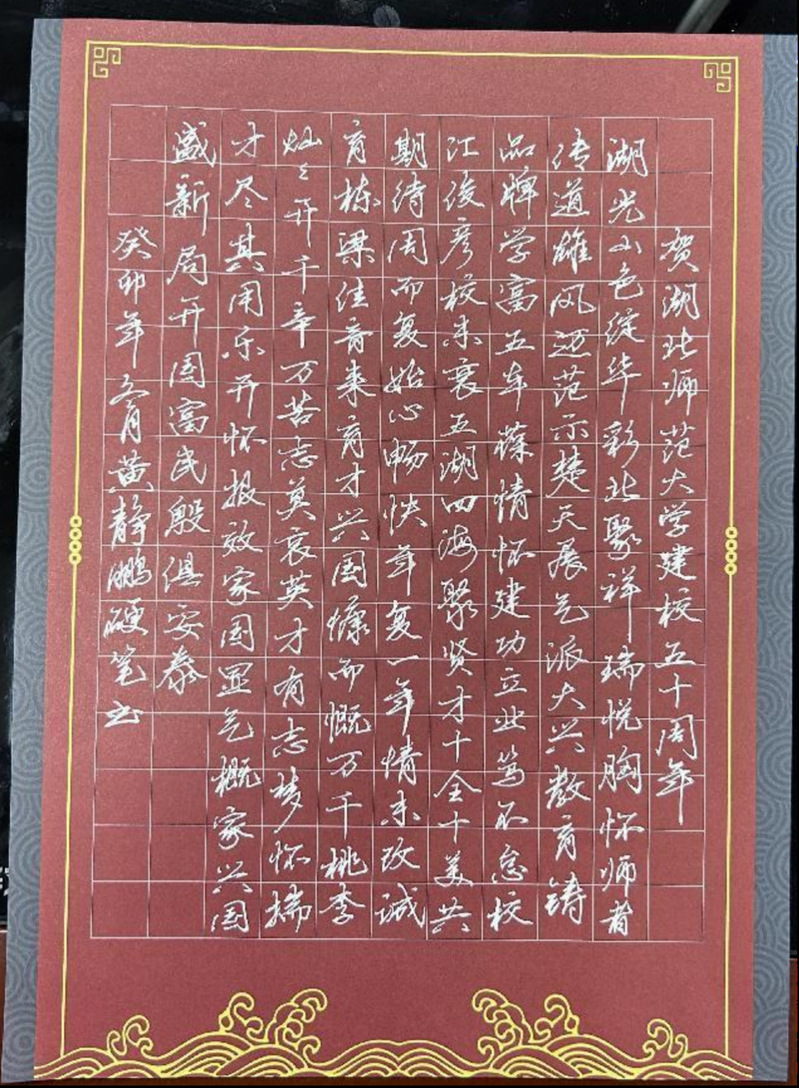 贺湖北师范大学建校五十周年
湖光山色绽华彩北聚祥瑞悦胸怀师者
传道雄风迈范示楚天展气派大兴教育铸
品牌学富五车葆情怀建功立业笃不怠校
汇俊彦校未衰五湖四海聚贤才十全十美共
期待周而复始心畅快年复一年情未改诚
育栋梁佳音来育才兴国慷而慨万千桃李
灿々开千辛万苦志莫衰英才有志梦怀揣
才尽其用乐开怀报效家国显气概家兴国
盛新局开国富民殷俱安泰
癸卯年冬月黄静鹏硬笔书